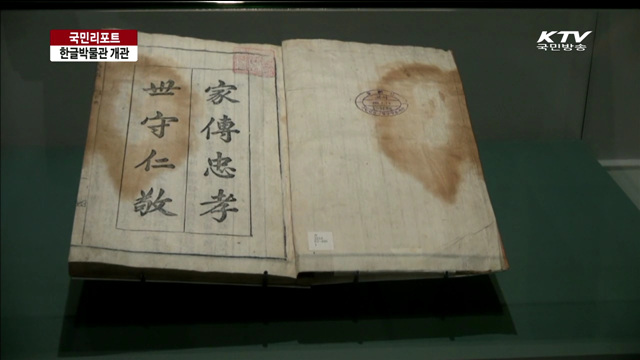 국민리포트
한글박물관 개관
KTV
국민방송
家傳忠孝
世守仁敬